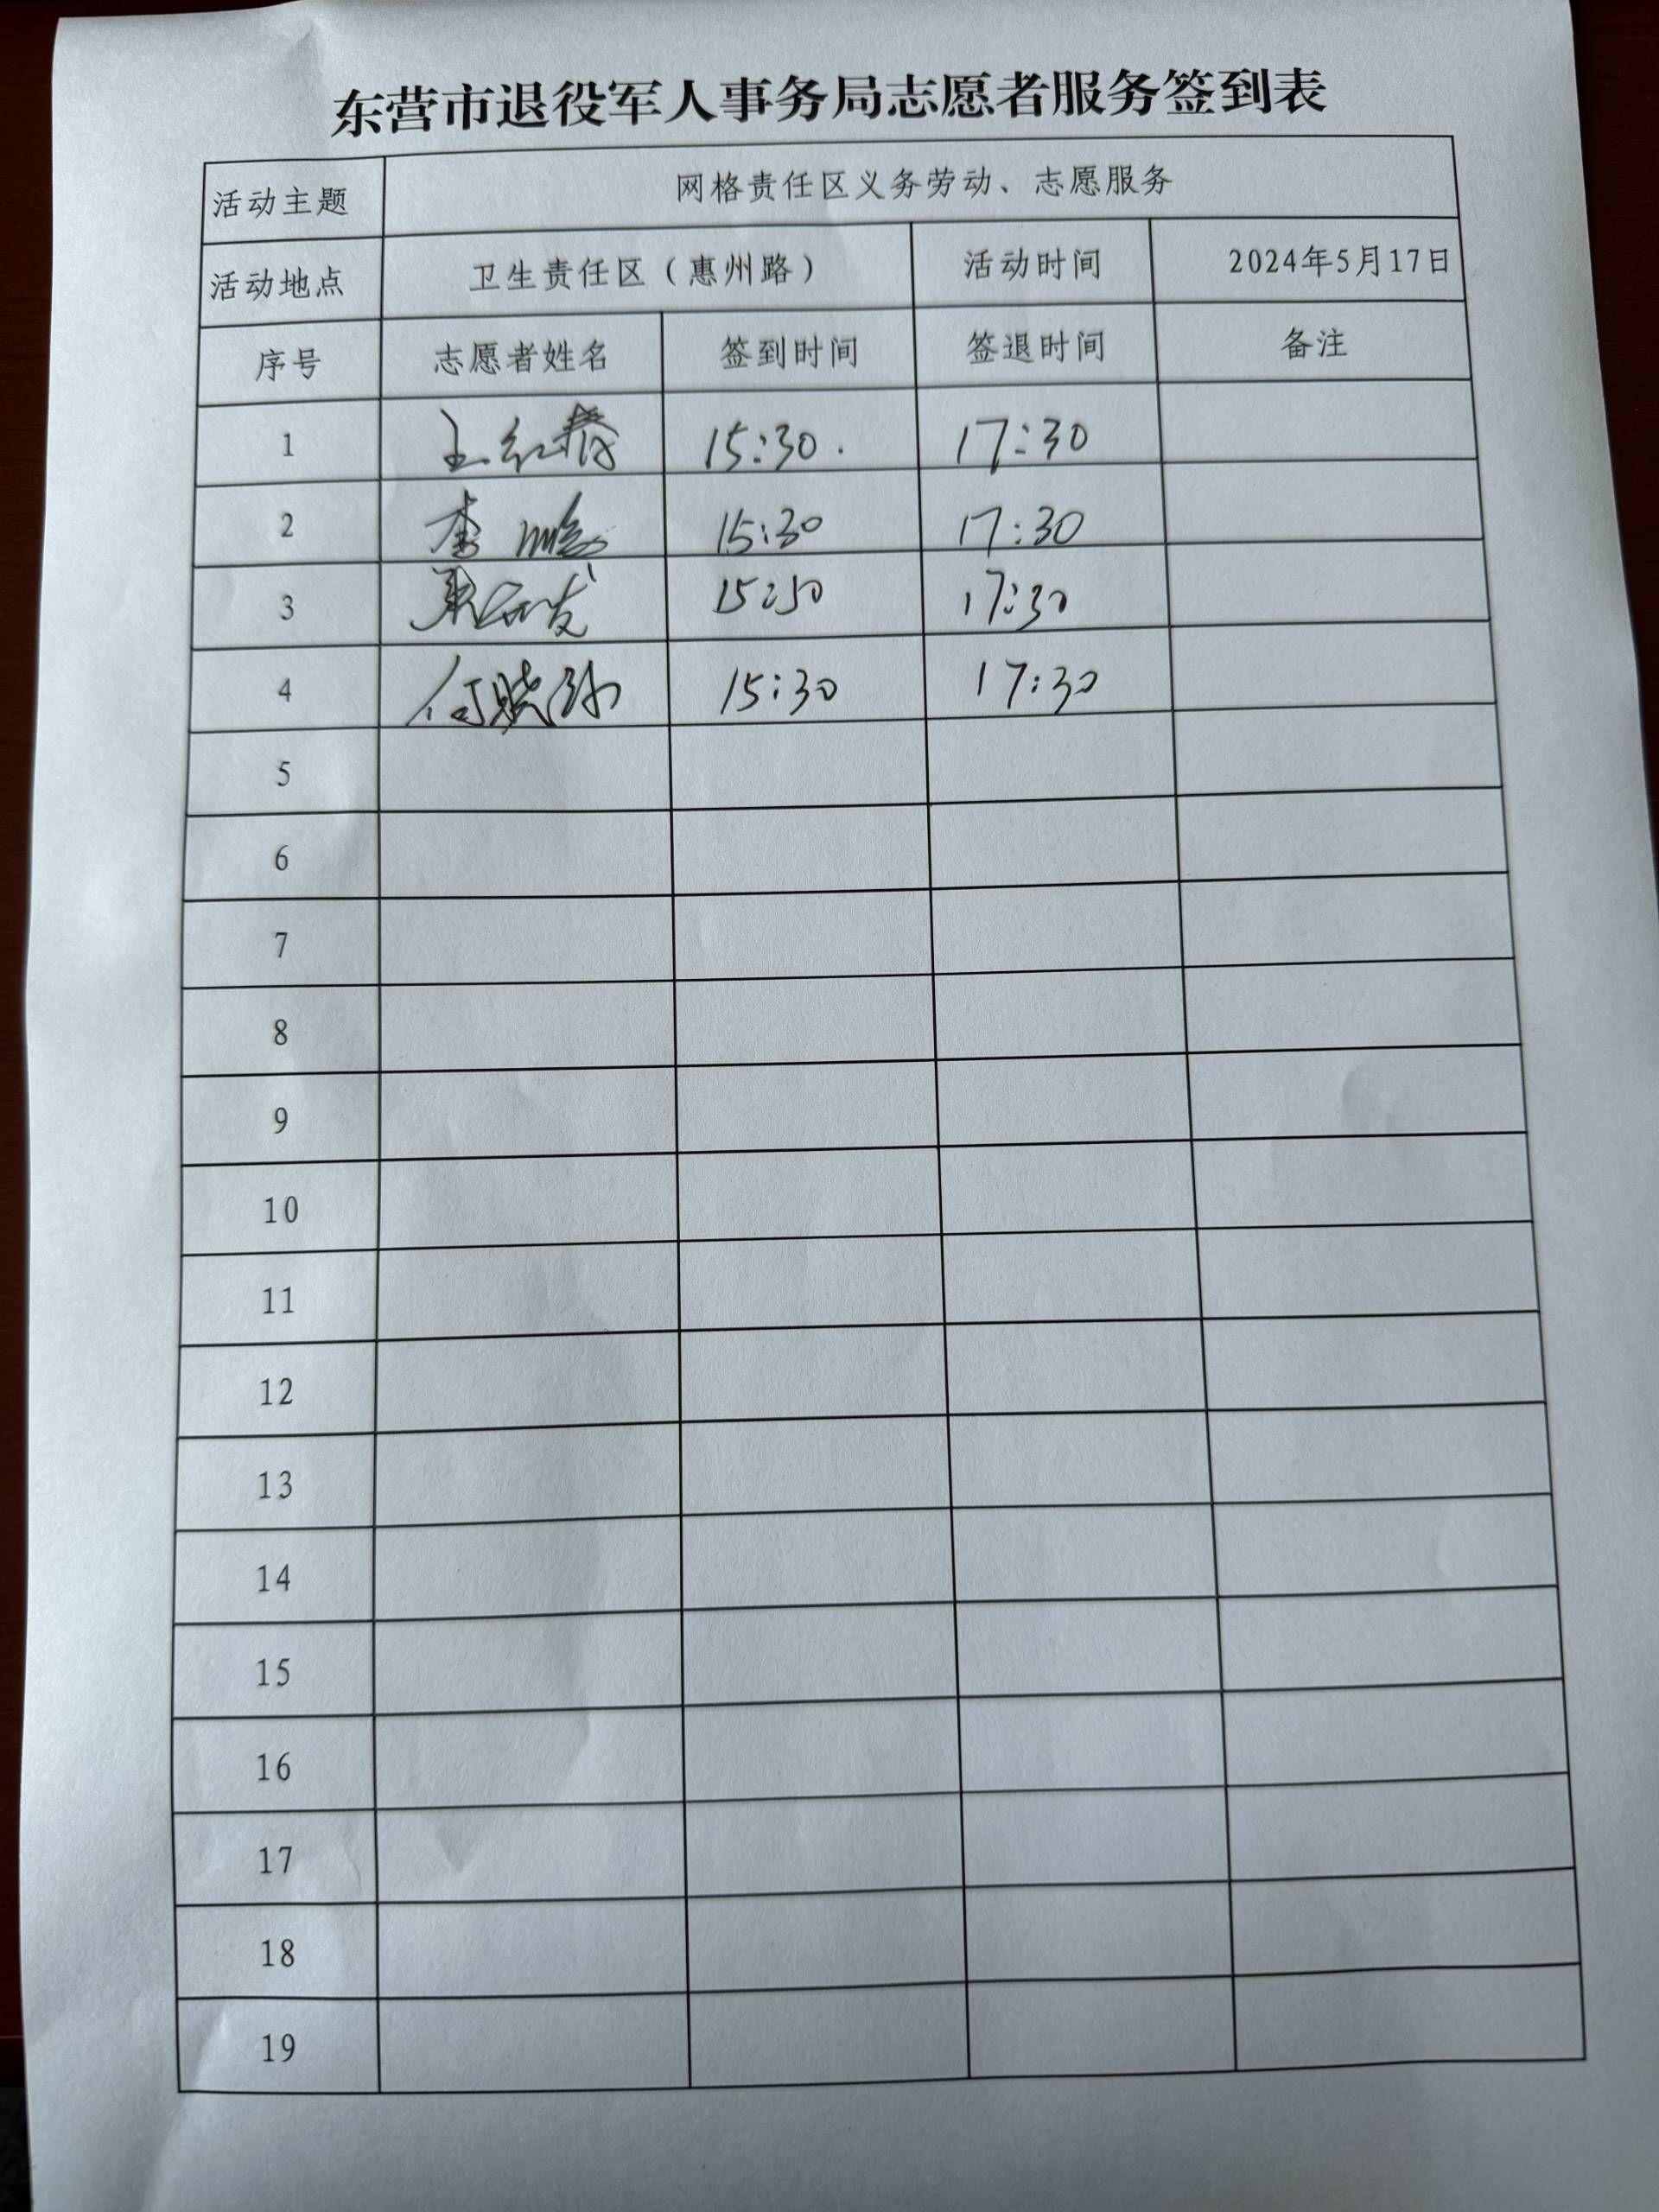 东营市退役军人事务局志愿者服务签到表
活动主题 网格责任区义务劳动、志愿服务
活动地点 卫生责任区（惠州路） 活动时间 2024年5月17日
序号 志愿者姓名 签到时间 签退时间 备注
1 王红春 15:30. 17:30
2 李 15:30 17:30
3 15:30 17:30
4 付晓 15:30 17:30
5
6
7
8
9
10
11
12
13
14
15
16
17
18
19